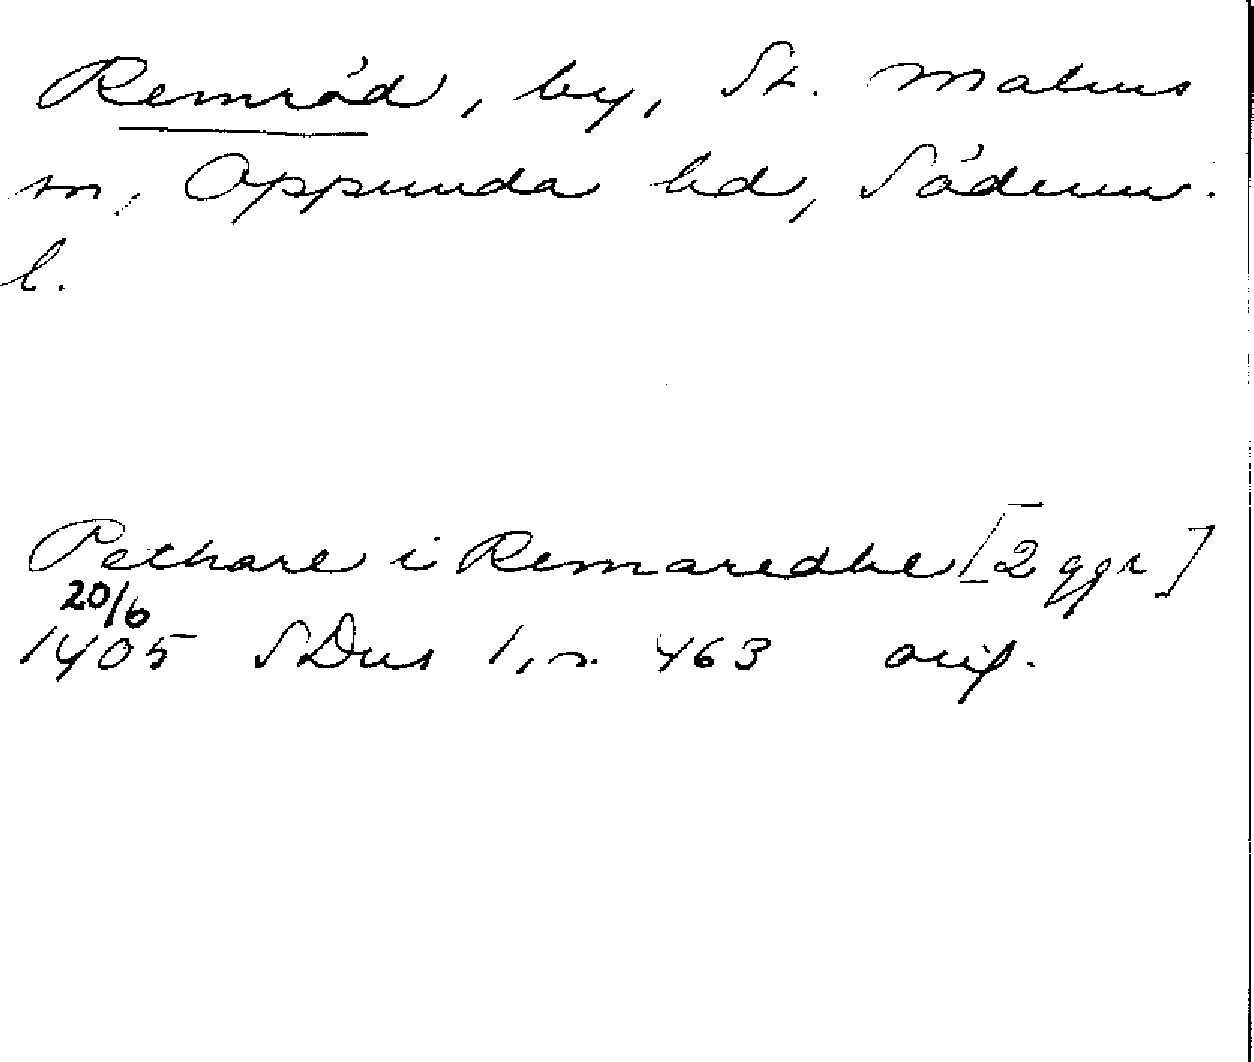 Remröd, by, St. Malms
sn, Oppunda hd, Söderm.
l.
Pethare i Remaredhe [2 ggr]
20/6
1405 SDns 1, s. 463 orig.